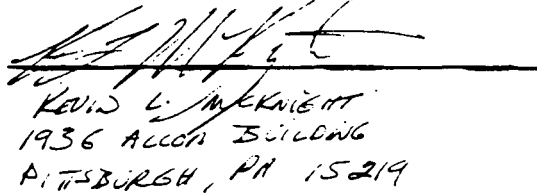 KEVIN L. McKNIGHT
1936 ALCOA BUILDING
PITTSBURGH, PA 15219